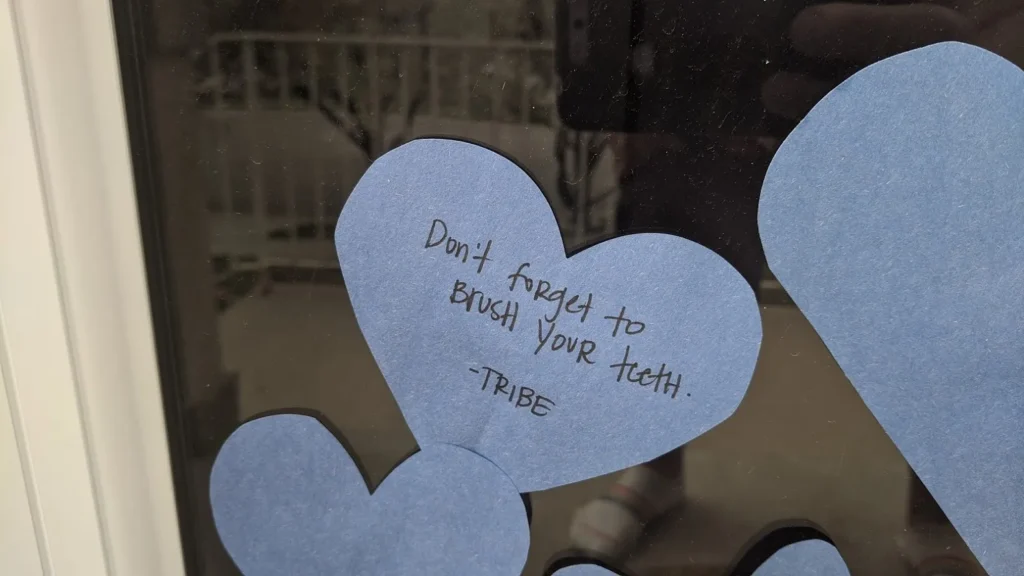 Don't forget to
BRUSH YOUR teeth.
-TRIBE